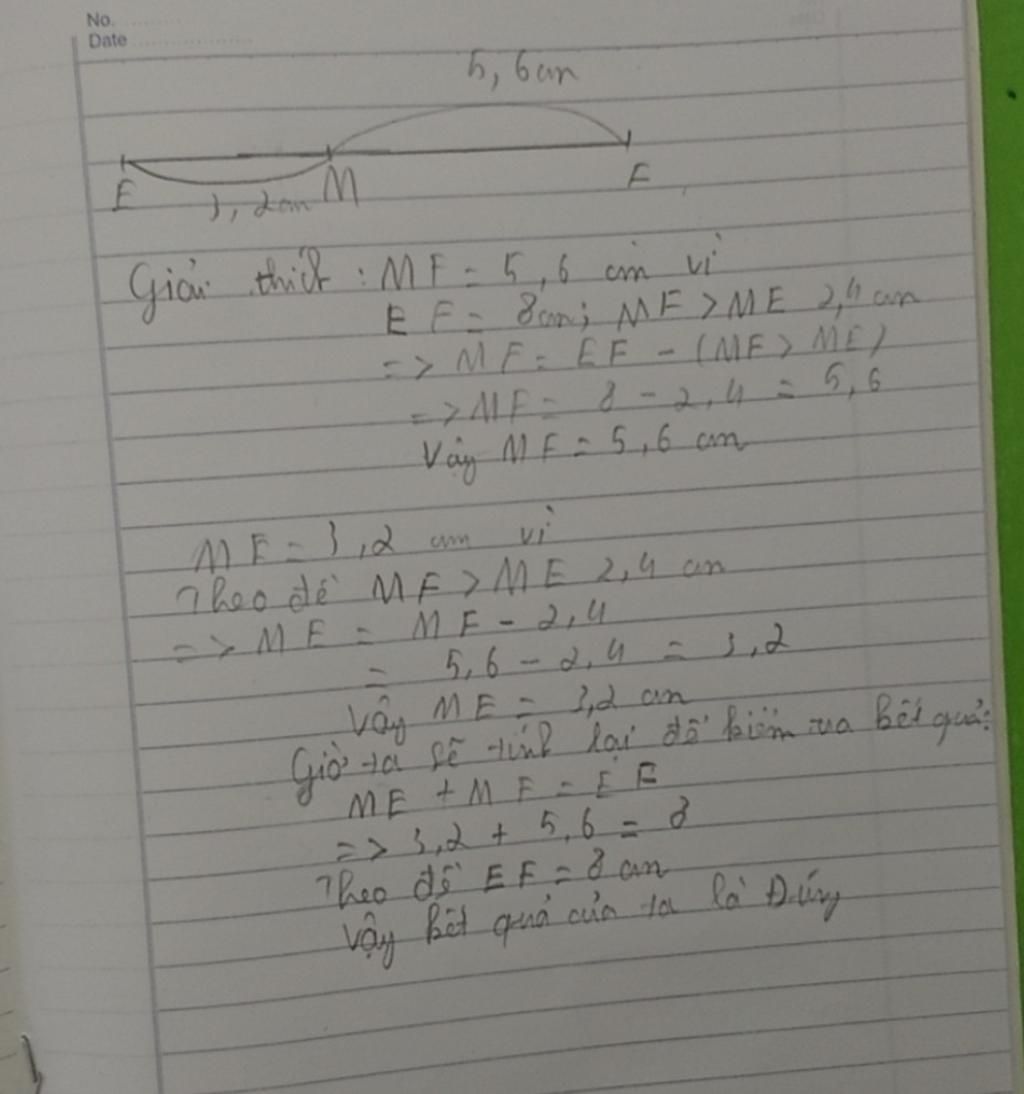 No.
Date
5,6cm
E 3,2cm M F
Giải thích : MF = 5,6 cm vì
EF = 8cm; MF > ME 2,4 cm
=> MF = EF - (MF > ME)
=> MF = 8 - 2,4 = 5,6
Vậy MF = 5,6 cm
ME = 3,2 cm vì
Theo đề MF > ME 2,4 cm
=> ME = MF - 2,4
= 5,6 - 2,4 = 3,2
Vậy ME = 3,2 cm
Giờ ta sẽ tính lại để kiểm tra kết quả:
ME + MF = EF
=> 3,2 + 5,6 = 8
Theo đề EF = 8 cm
Vậy kết quả của ta là Đúng